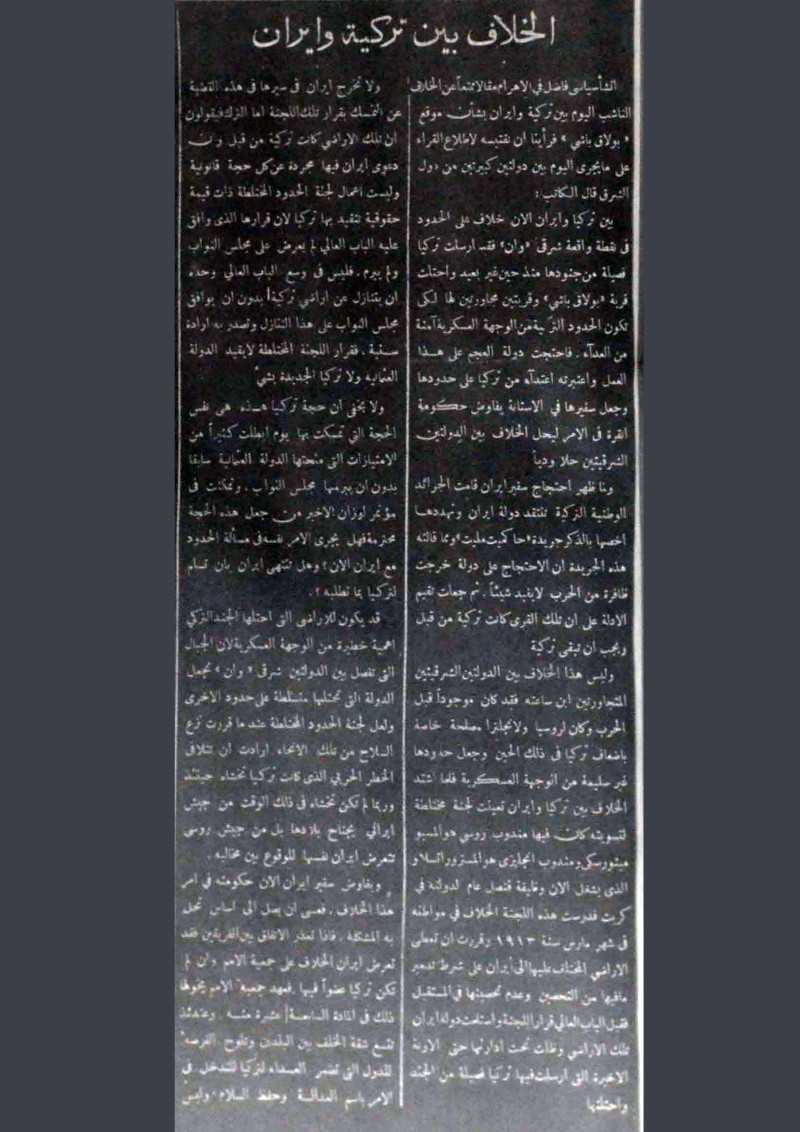 الخلاف بين تركية وايران
انشأ سياسى فاضل في الاهرام مقالا ممتعاً عن الخلاف
الناشب اليوم بين تركية وايران بشأن موقع
« بولاق باشي » فرأينا ان نقتبسه لاطلاع القراء
على ما يجرى اليوم بين دولتين كبيرتين من دول
الشرق قال الكاتب :
بين تركيا وايران الان خلاف على الحدود
فى نقطة واقعة شرقى «وان» فقد ارسلت تركيا
فصيلة من جنودها منذ حين غير بعيد واحتلت
قرية «بولاق باشي» وقريتين مجاورتين لها لكى
تكون الحدود التركية من الوجهة العسكرية آمنة
من العدآء . فاحتجت دولة العجم على هذا
العمل واعتبرته اعتدآء من تركيا على حدودها
وجعل سفيرها في الاستانة يفاوض حكومة
انقرة فى الامر ليحل الخلاف بين الدولتين
الشرقيتين حلا ودياً
وما ظهر احتجاج سفير ايران قامت الجرائد
الوطنية التركية تنتقد دولة ايران وتهددها
اخصها بالذكر جريدة «حاكميت مليت» ومما قالته
هذه الجريدة ان الاحتجاج على دولة خرجت
ظافرة من الحرب لايفيد شيئاً . ثم جعلت تقيم
الادلة على ان تلك القرى كانت تركية من قبل
ويجب ان تبقى تركية
وليس هذا الخلاف بين الدولتين الشرقيتين
المتجاورتين ابن ساعته فقد كان موجوداً قبل
الحرب وكان لروسيا ولانجلترا مصلحة خاصة
باضعاف تركيا فى ذلك الحين وجعل حدودها
غير سليمة من الوجهة العسكرية فلما اشتد
الخلاف بين تركيا وايران تعينت لجنة مختلطة
لتسويته كان فيها مندوب روسي هو المسيو
مينورسكى ومندوب انجليزى هو المستر وراتسلاو
الذى يشغل الان وظيفة قنصل عام لدولته في
كريت فدرست هذه اللجنة الخلاف في مواطنه
فى شهر مارس سنة ١٩١٣ وقررت ان تعطى
الاراضي المختلف عليها الى ايران على شرط تدمير
مافيها من التحصين وعدم تحصينها في المستقبل
فقبل الباب العالي قرار اللجنة واستلمت دولة ايران
تلك الاراضي وظلت تحت ادارتها حتى الاونة
الاخيرة التى ارسلت فيها تركيا فصيلة من الجند
واحتلتها
ولا تخرج ايران فى سيرها فى هذه القضية
عن التمسك بقرار تلك اللجنة اما الترك فيقولون
ان تلك الاراضي كانت تركية من قبل وان
دعوى ايران فيها مجردة عن كل حجة قانونية
وليست اعمال لجنة الحدود المختلطة ذات قيمة
حقوقية تتقيد بها تركيا لان قرارها الذى وافق
عليه الباب العالي لم يعرض على مجلس النواب
ولم يبرم . فليس فى وسع الباب العالي وحده
ان يتنازل عن اراضي تركية بدون ان يوافق
مجلس النواب على هذا التنازل وتصدر به ارادة
سنية . فقرار اللجنة المختلطة لايقيد الدولة
العثمانيه ولا تركيا الجديدة بشيء
ولا يخفى ان حجة تركيا هذه هى نفس
الحجة التى تمسكت بها يوم ابطلت كثيراً من
الامتيازات التى منحتها الدولة العثمانية سابقا
بدون ان يبرمها مجلس النواب . وتمكنت فى
مؤتمر لوزان الاخير من جعل هذه الحجة
محترمة فهل يجرى الامر نفسه فى مسألة الحدود
مع ايران الان ؟ وهل تنتهى ايران بان تسلم
لتركيا بما تطلبه ؟ .
قد يكون للاراضى التى احتلها الجند التركي
اهمية خطيرة من الوجهة العسكرية لان الجبال
التى تفصل بين الدولتين شرقى « وان » تجعل
الدولة التى تحتلها متسلطة على حدود الاخرى
ولعل لجنة الحدود المختلطة عند ما قررت نزع
السلاح من تلك الانحاء ارادت ان تتلافى
الخطر الحربي الذى كانت تركيا تخشاه حينئذ
وربما لم تكن تخشاه فى ذلك الوقت من جيش
ايراني يجتاح بلادها بل من جيش روسى
تتعرض ايران نفسها للوقوع بين مخالبه .
ويفاوض سفير ايران الان حكومته في امر
هذا الخلاف . فعسى ان يصل الى اساس تحل
به المشكلة . فاذا تعذر الاتفاق بين الفريقين فقد
تعرض ايران الخلاف على جمعية الامم وان لم
تكن تركيا عضواً فيها . فعهد جمعية الامم يخولها
ذلك فى المادة السابعة عشرة منه . وعندئذ
تتسع شقة الخلف بين البلدين وتلوح الفرصة
للدول التى تضمر العداء لتركيا للتدخل في
الامر باسم العدالة وحفظ السلام . وليس